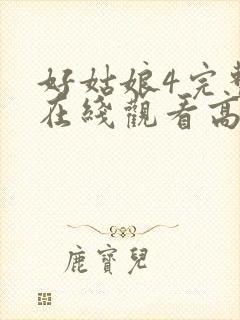 好姑娘4完整
在綫觀看高
鹿寶兒